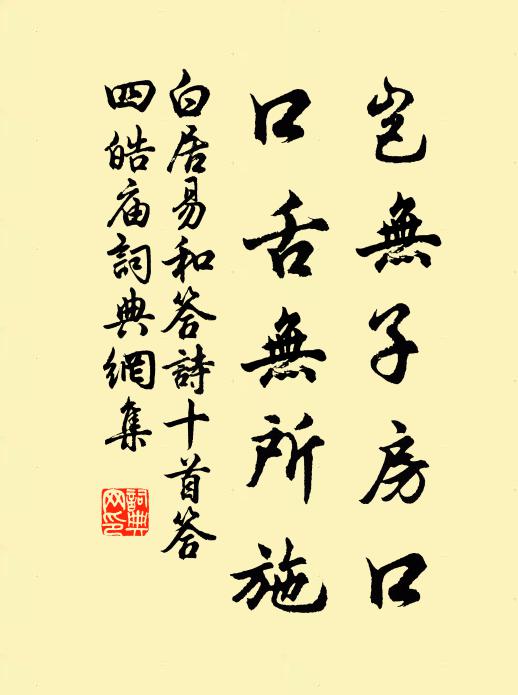 豈無子房口
口舌無所施
白居易和答詩十首答
四皓庙詞典網集
詞典网印